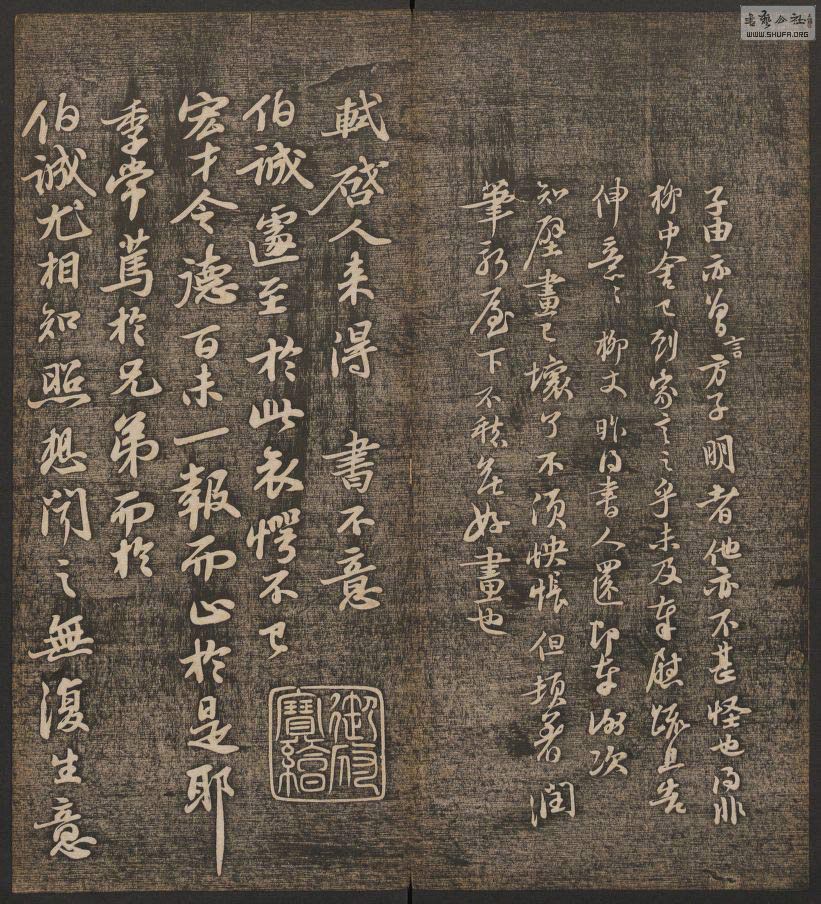 子由亦曾言方子明者他亦不甚怪也得非
柳中舍已到家言之乎未及奉慰疏且告
伸意〻柳丈昨得書人還即奉謝次
知壁畫已壞了不須怏悵但頓著潤
筆新屋下不愁無好畫也
軾啓人來得書不意
伯誠遽至於此哀愕不已
宏才令德百未一報而止於是耶
季常篤於兄弟而於
伯誠尤相知照想聞之無復生意
御府寶繪
書藝公社
WWW.SHUFA.ORG